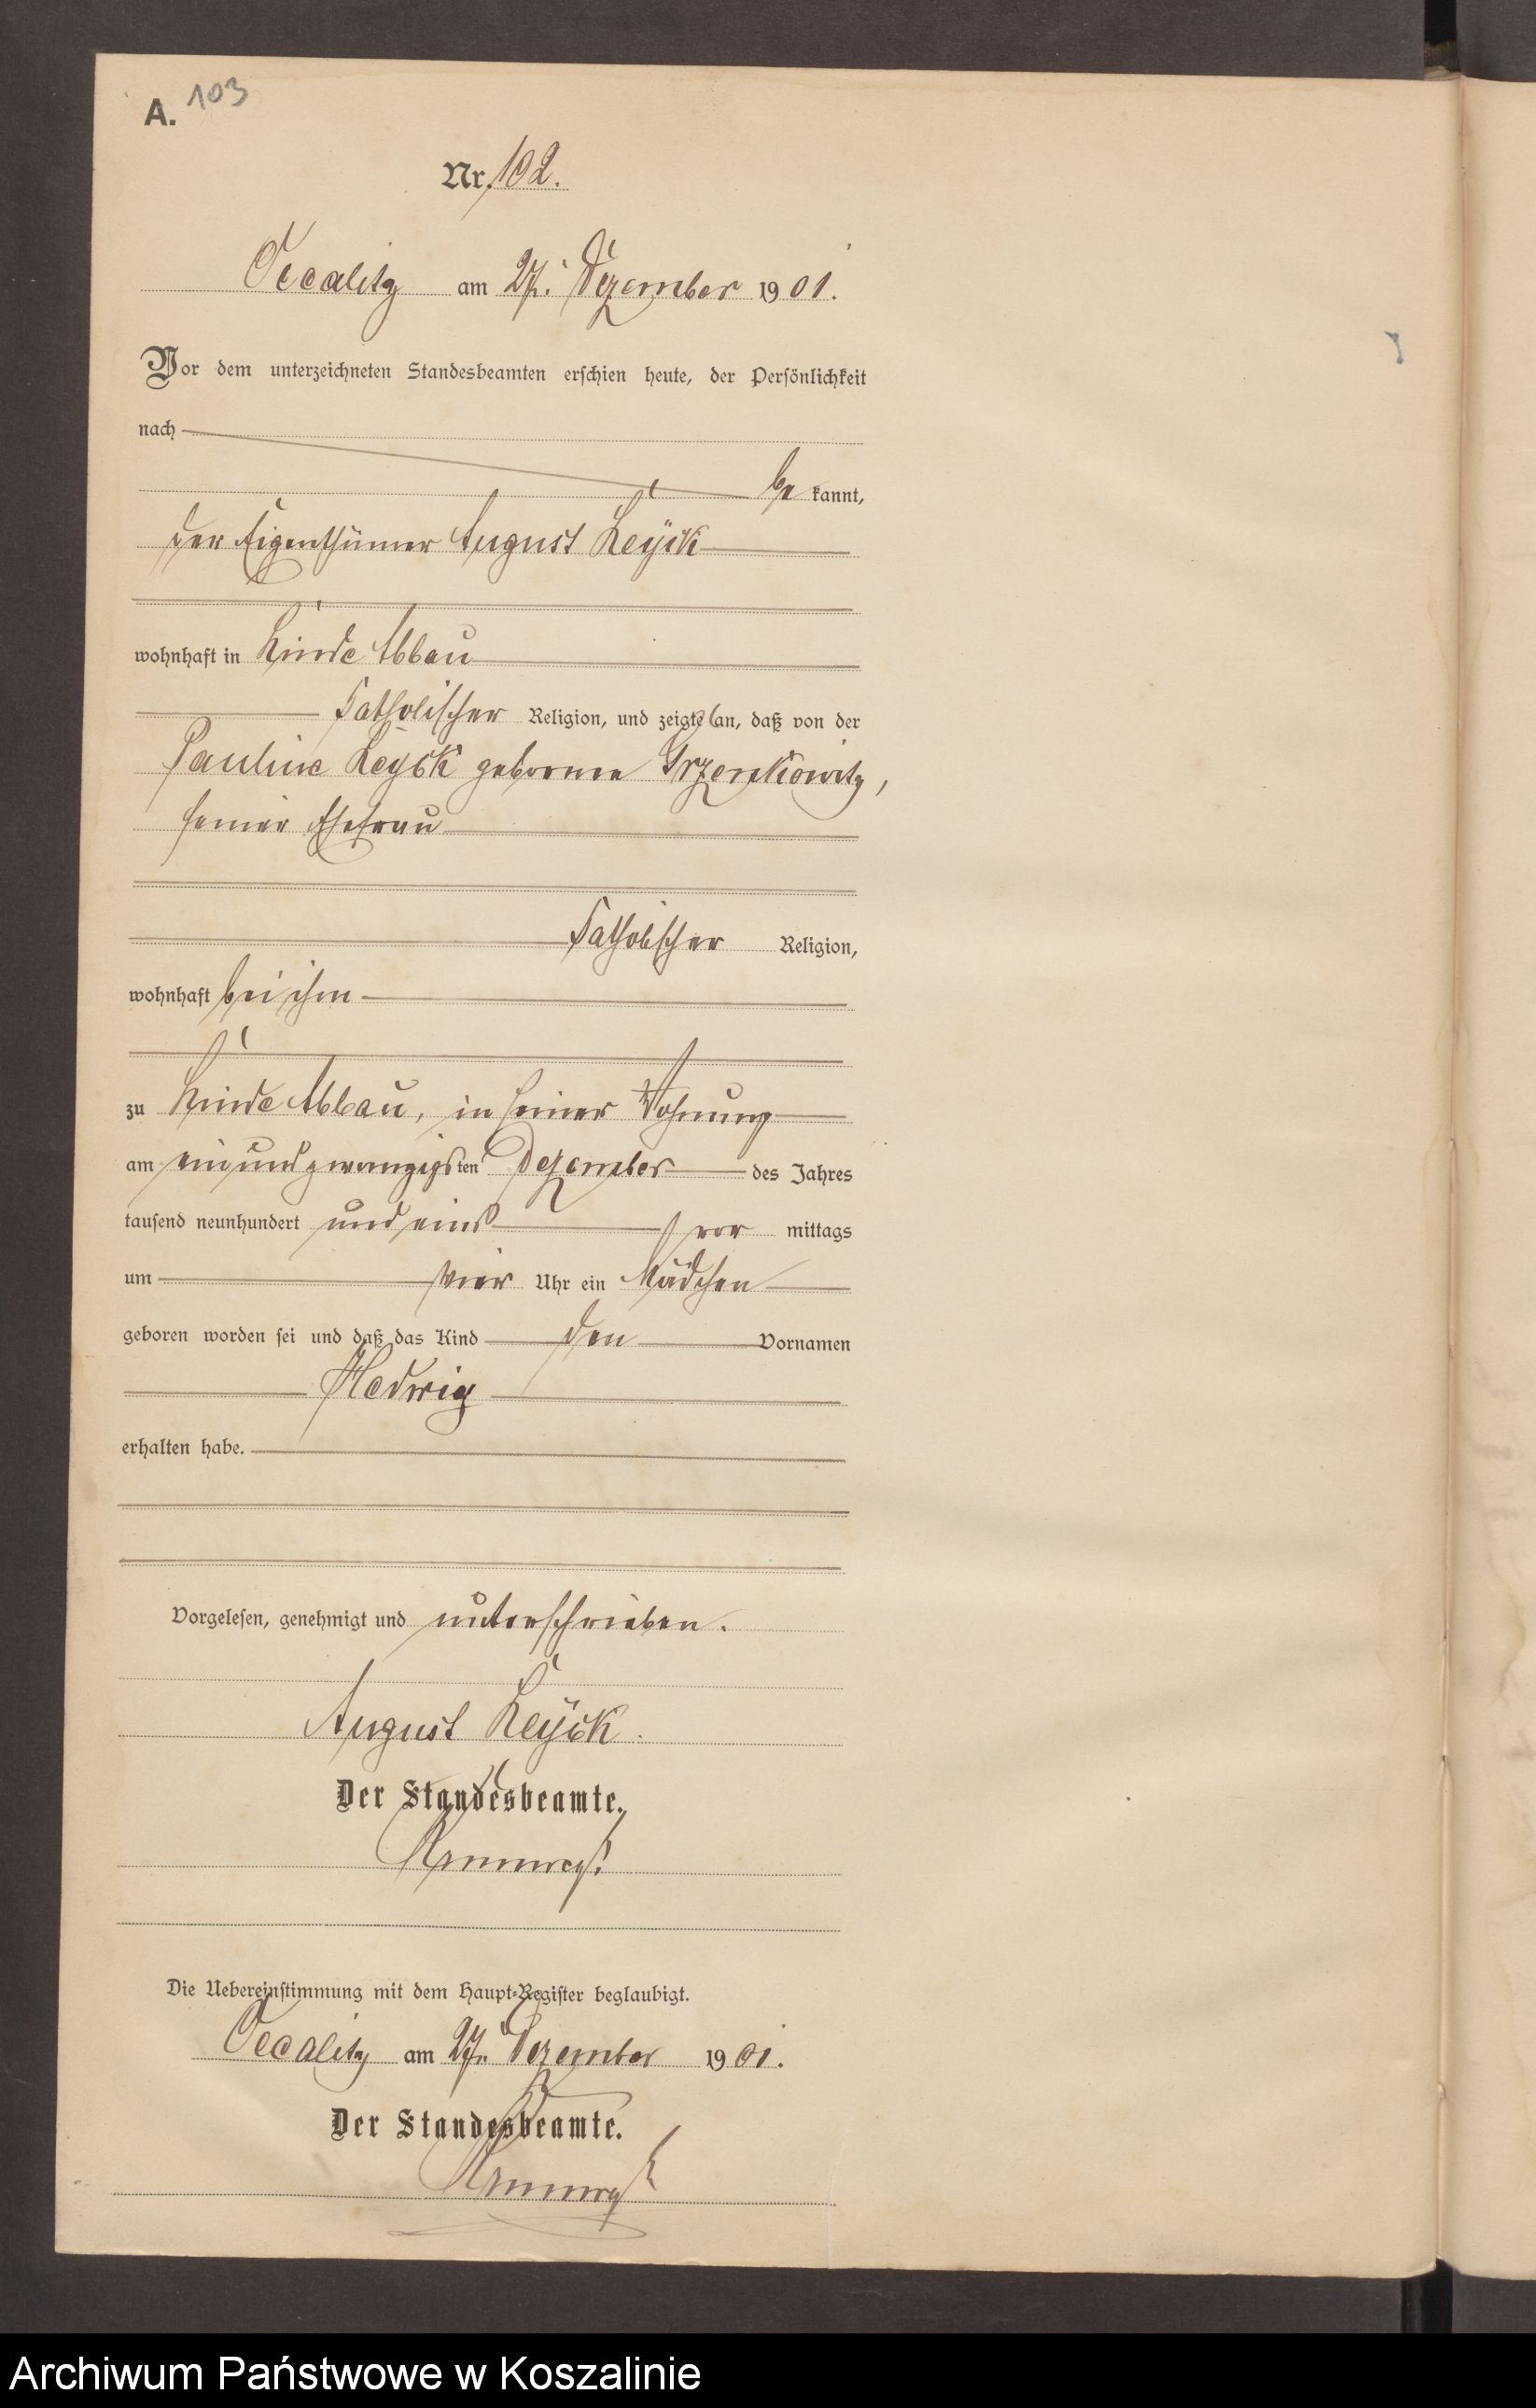 A. 103
Nr. 102.
Occalitz am 27. Dezember 1901.
Vor dem unterzeichneten Standesbeamten erschien heute, der Persönlichkeit
nach
be kannt,
der Eigenthümer August Leyck
wohnhaft in Linde Abbau
katholischer Religion, und zeigte an, daß von der
Pauline Leyck geborene Grzenkowitz,
seiner Ehefrau
katholischer Religion,
wohnhaft bei ihm
zu Linde Abbau, in seiner Wohnung
am einundzwanzigsten Dezember des Jahres
tausend neunhundert und eins vor mittags
um vier Uhr ein Mädchen
geboren worden sei und daß das Kind den Vornamen
Hedwig
erhalten habe.
Vorgelesen, genehmigt und unterschrieben.
August Leyck.
Der Standesbeamte.
Die Uebereinstimmung mit dem Haupt-Register beglaubigt.
Occalitz am 27. Dezember 1901.
Der Standesbeamte.
Archiwum Państwowe w Koszalinie